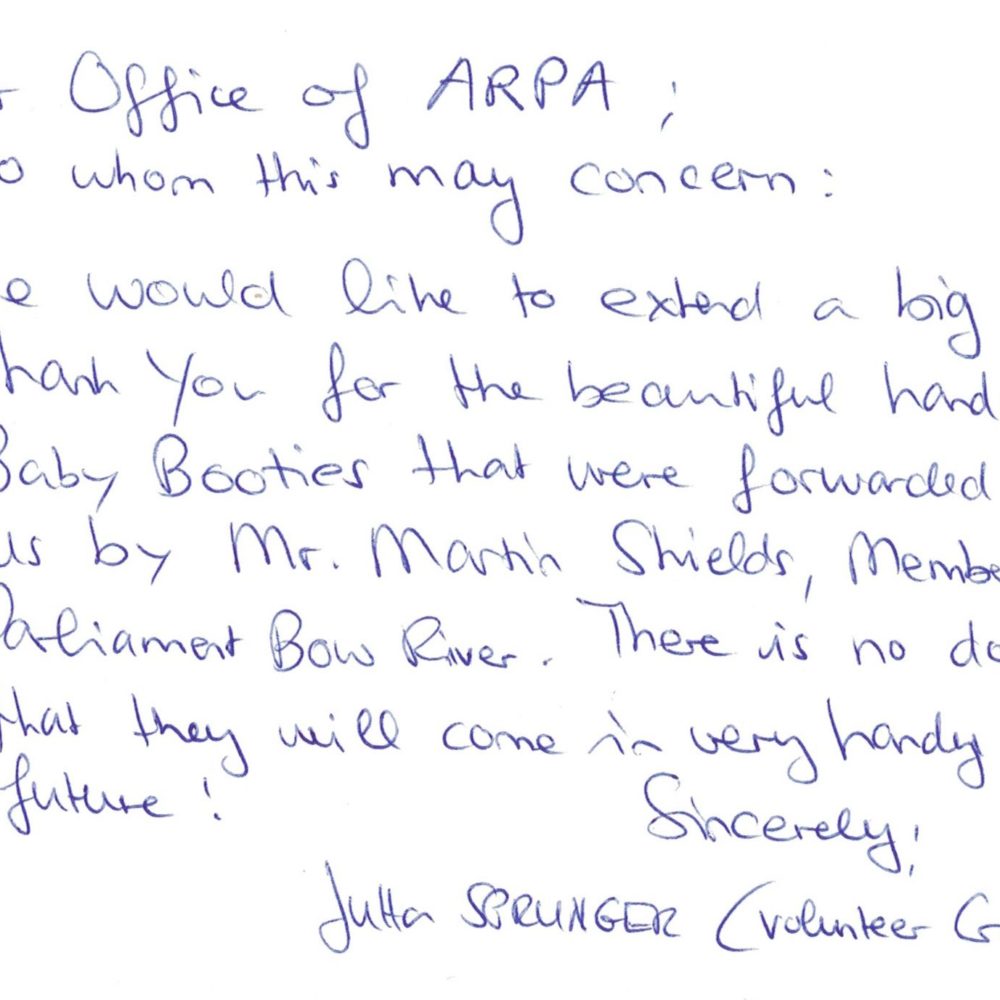 r Office of ARPA,
o whom this may concern:
e would like to extend a big
hank You for the beautiful hand
Baby Booties that were forwarded
us by Mr. Martin Shields, Membe
Parliament Bow River. There is no do
that they will come in very handy
future!
Sincerely,
Jutta SPRUNGER (Volunteer G